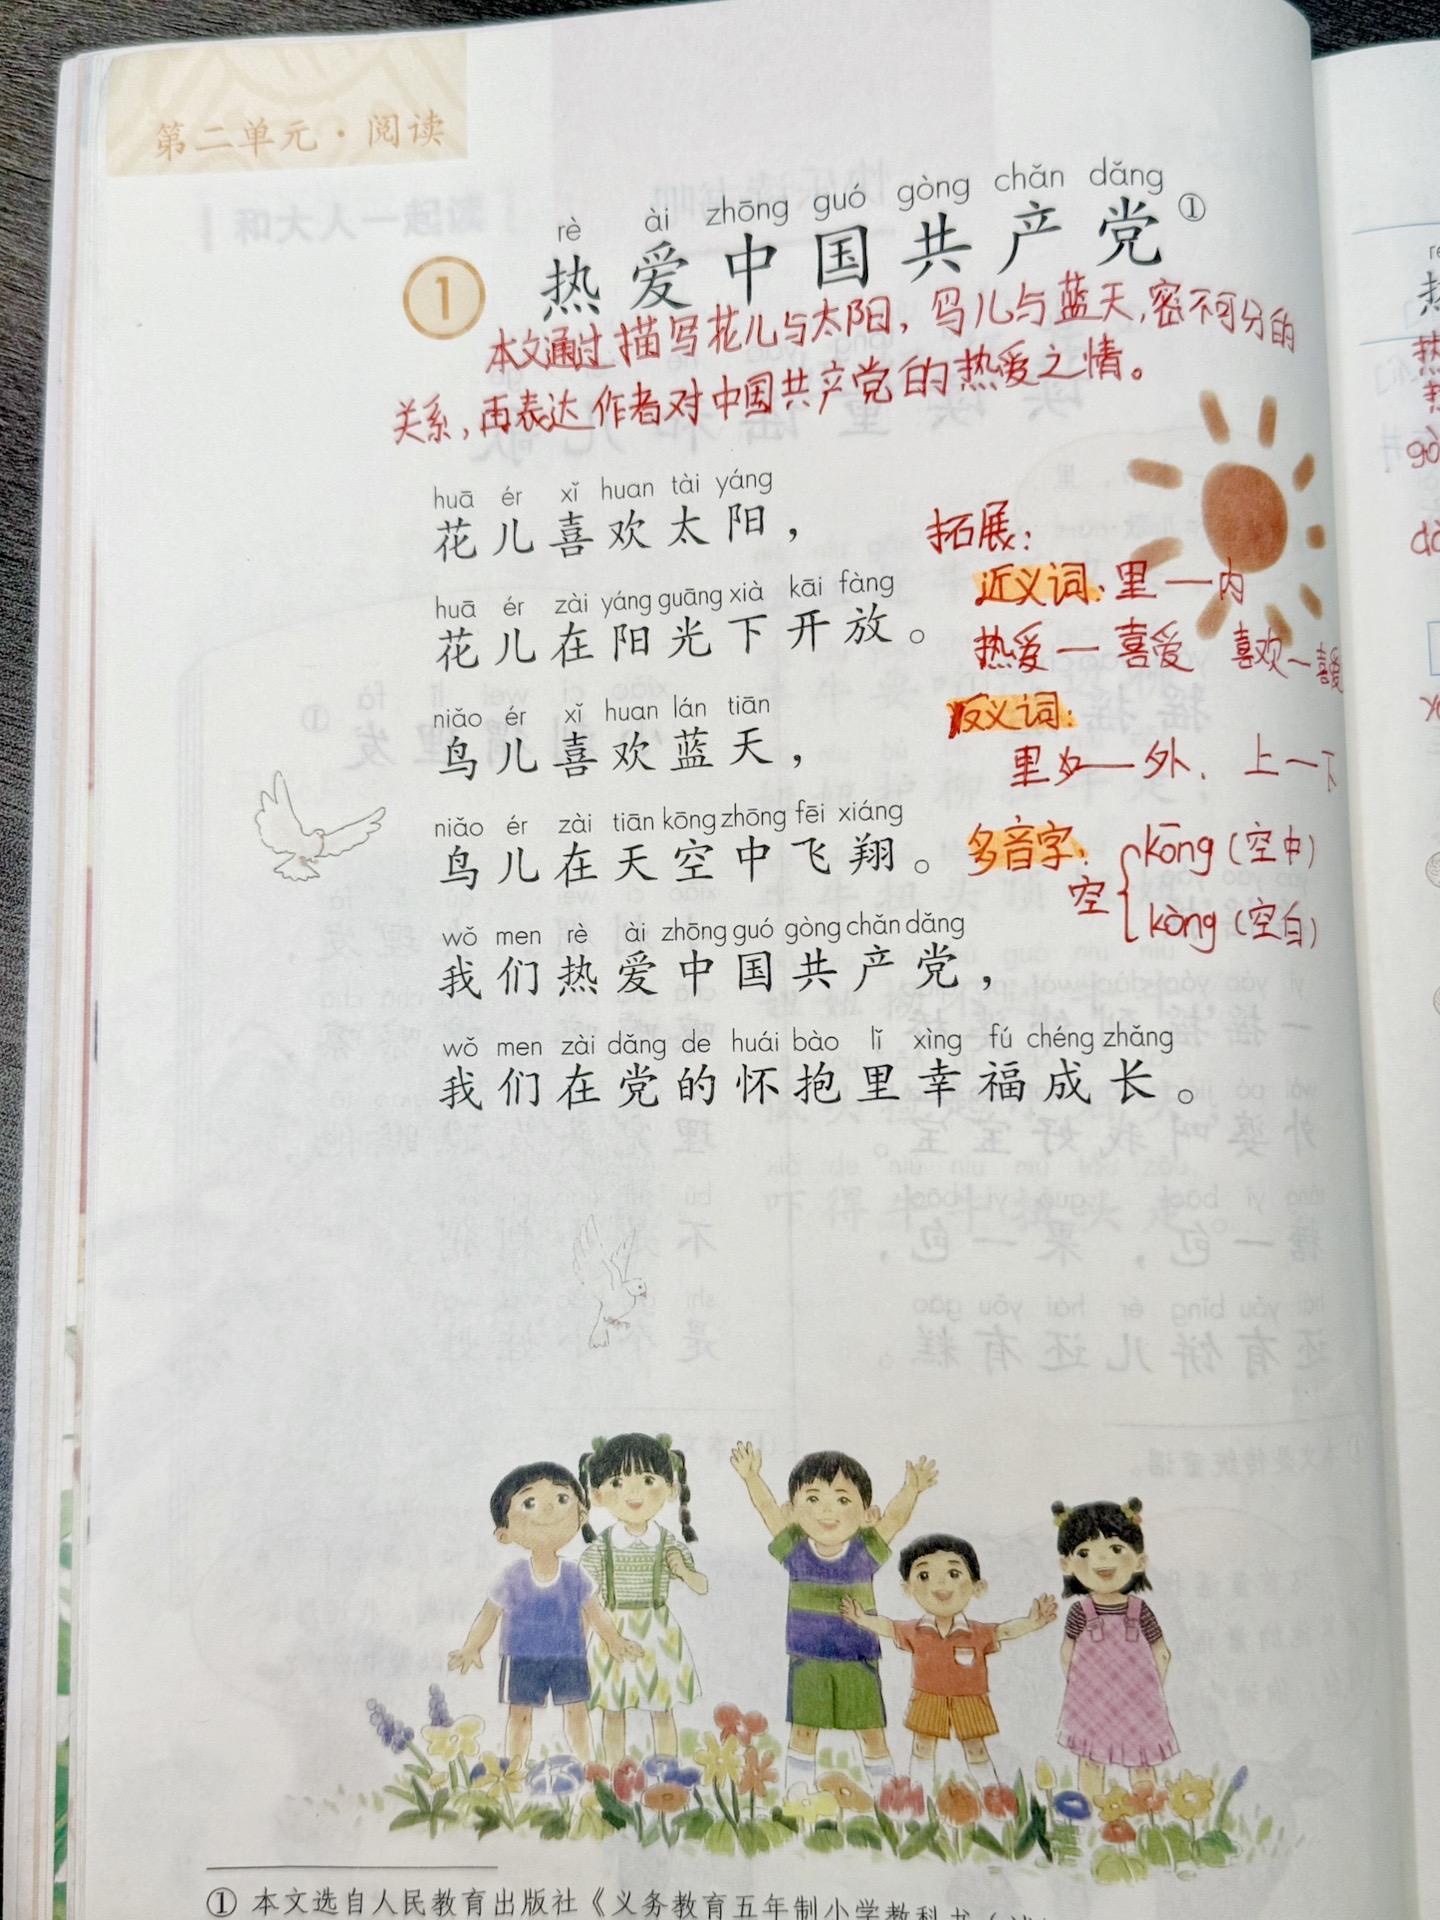 第二单元·阅读
rè ài zhōng guó gòng chǎn dǎng
1 热爱中国共产党①
本文通过描写花儿与太阳，鸟儿与蓝天，密不可分的
关系，再表达作者对中国共产党的热爱之情。
huā ér xǐ huan tài yáng
花儿喜欢太阳，
huā ér zài yáng guāng xià kāi fàng
花儿在阳光下开放。
niǎo ér xǐ huan lán tiān
鸟儿喜欢蓝天，
niǎo ér zài tiān kōng zhōng fēi xiáng
鸟儿在天空中飞翔。
wǒ men rè ài zhōng guó gòng chǎn dǎng
我们热爱中国共产党，
wǒ men zài dǎng de huái bào lǐ xìng fú chéng zhǎng
我们在党的怀抱里幸福成长。
拓展：
近义词：里—内
热爱—喜爱 喜欢—喜爱
反义词：
里—外、上—下
多音字：
空 kōng（空中）
kòng（空白）
① 本文选自人民教育出版社《义务教育五年制小学教科书